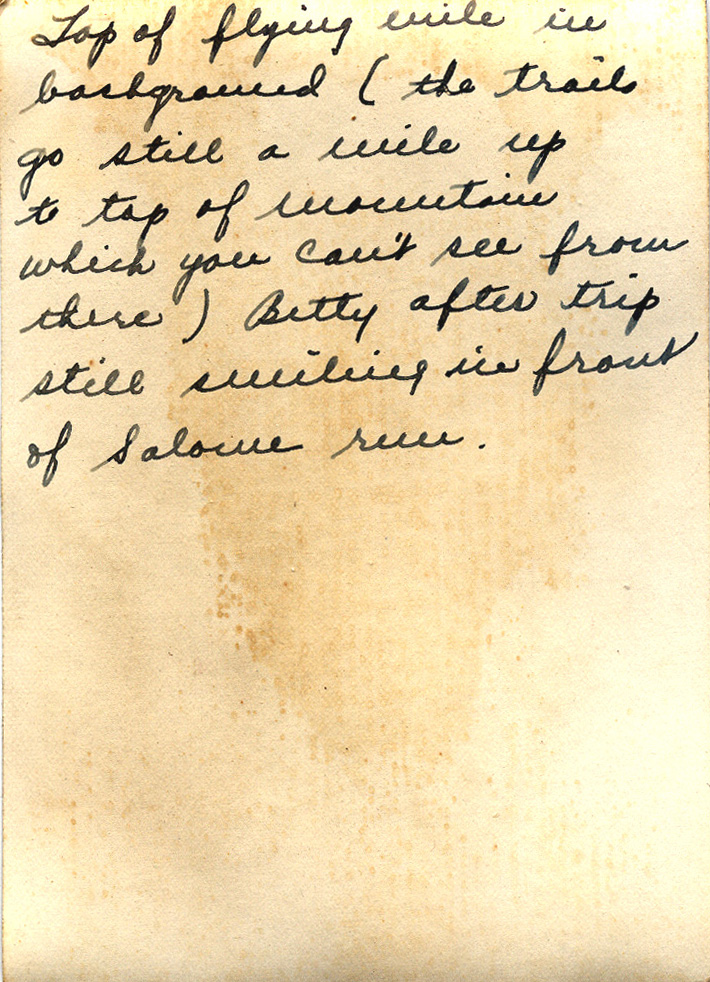 Top of flying mile in
background ( the trails
go still a mile up
to top of mountain
which you can't see from
there ) Betty after trip
still smiling in front
of Salome run.